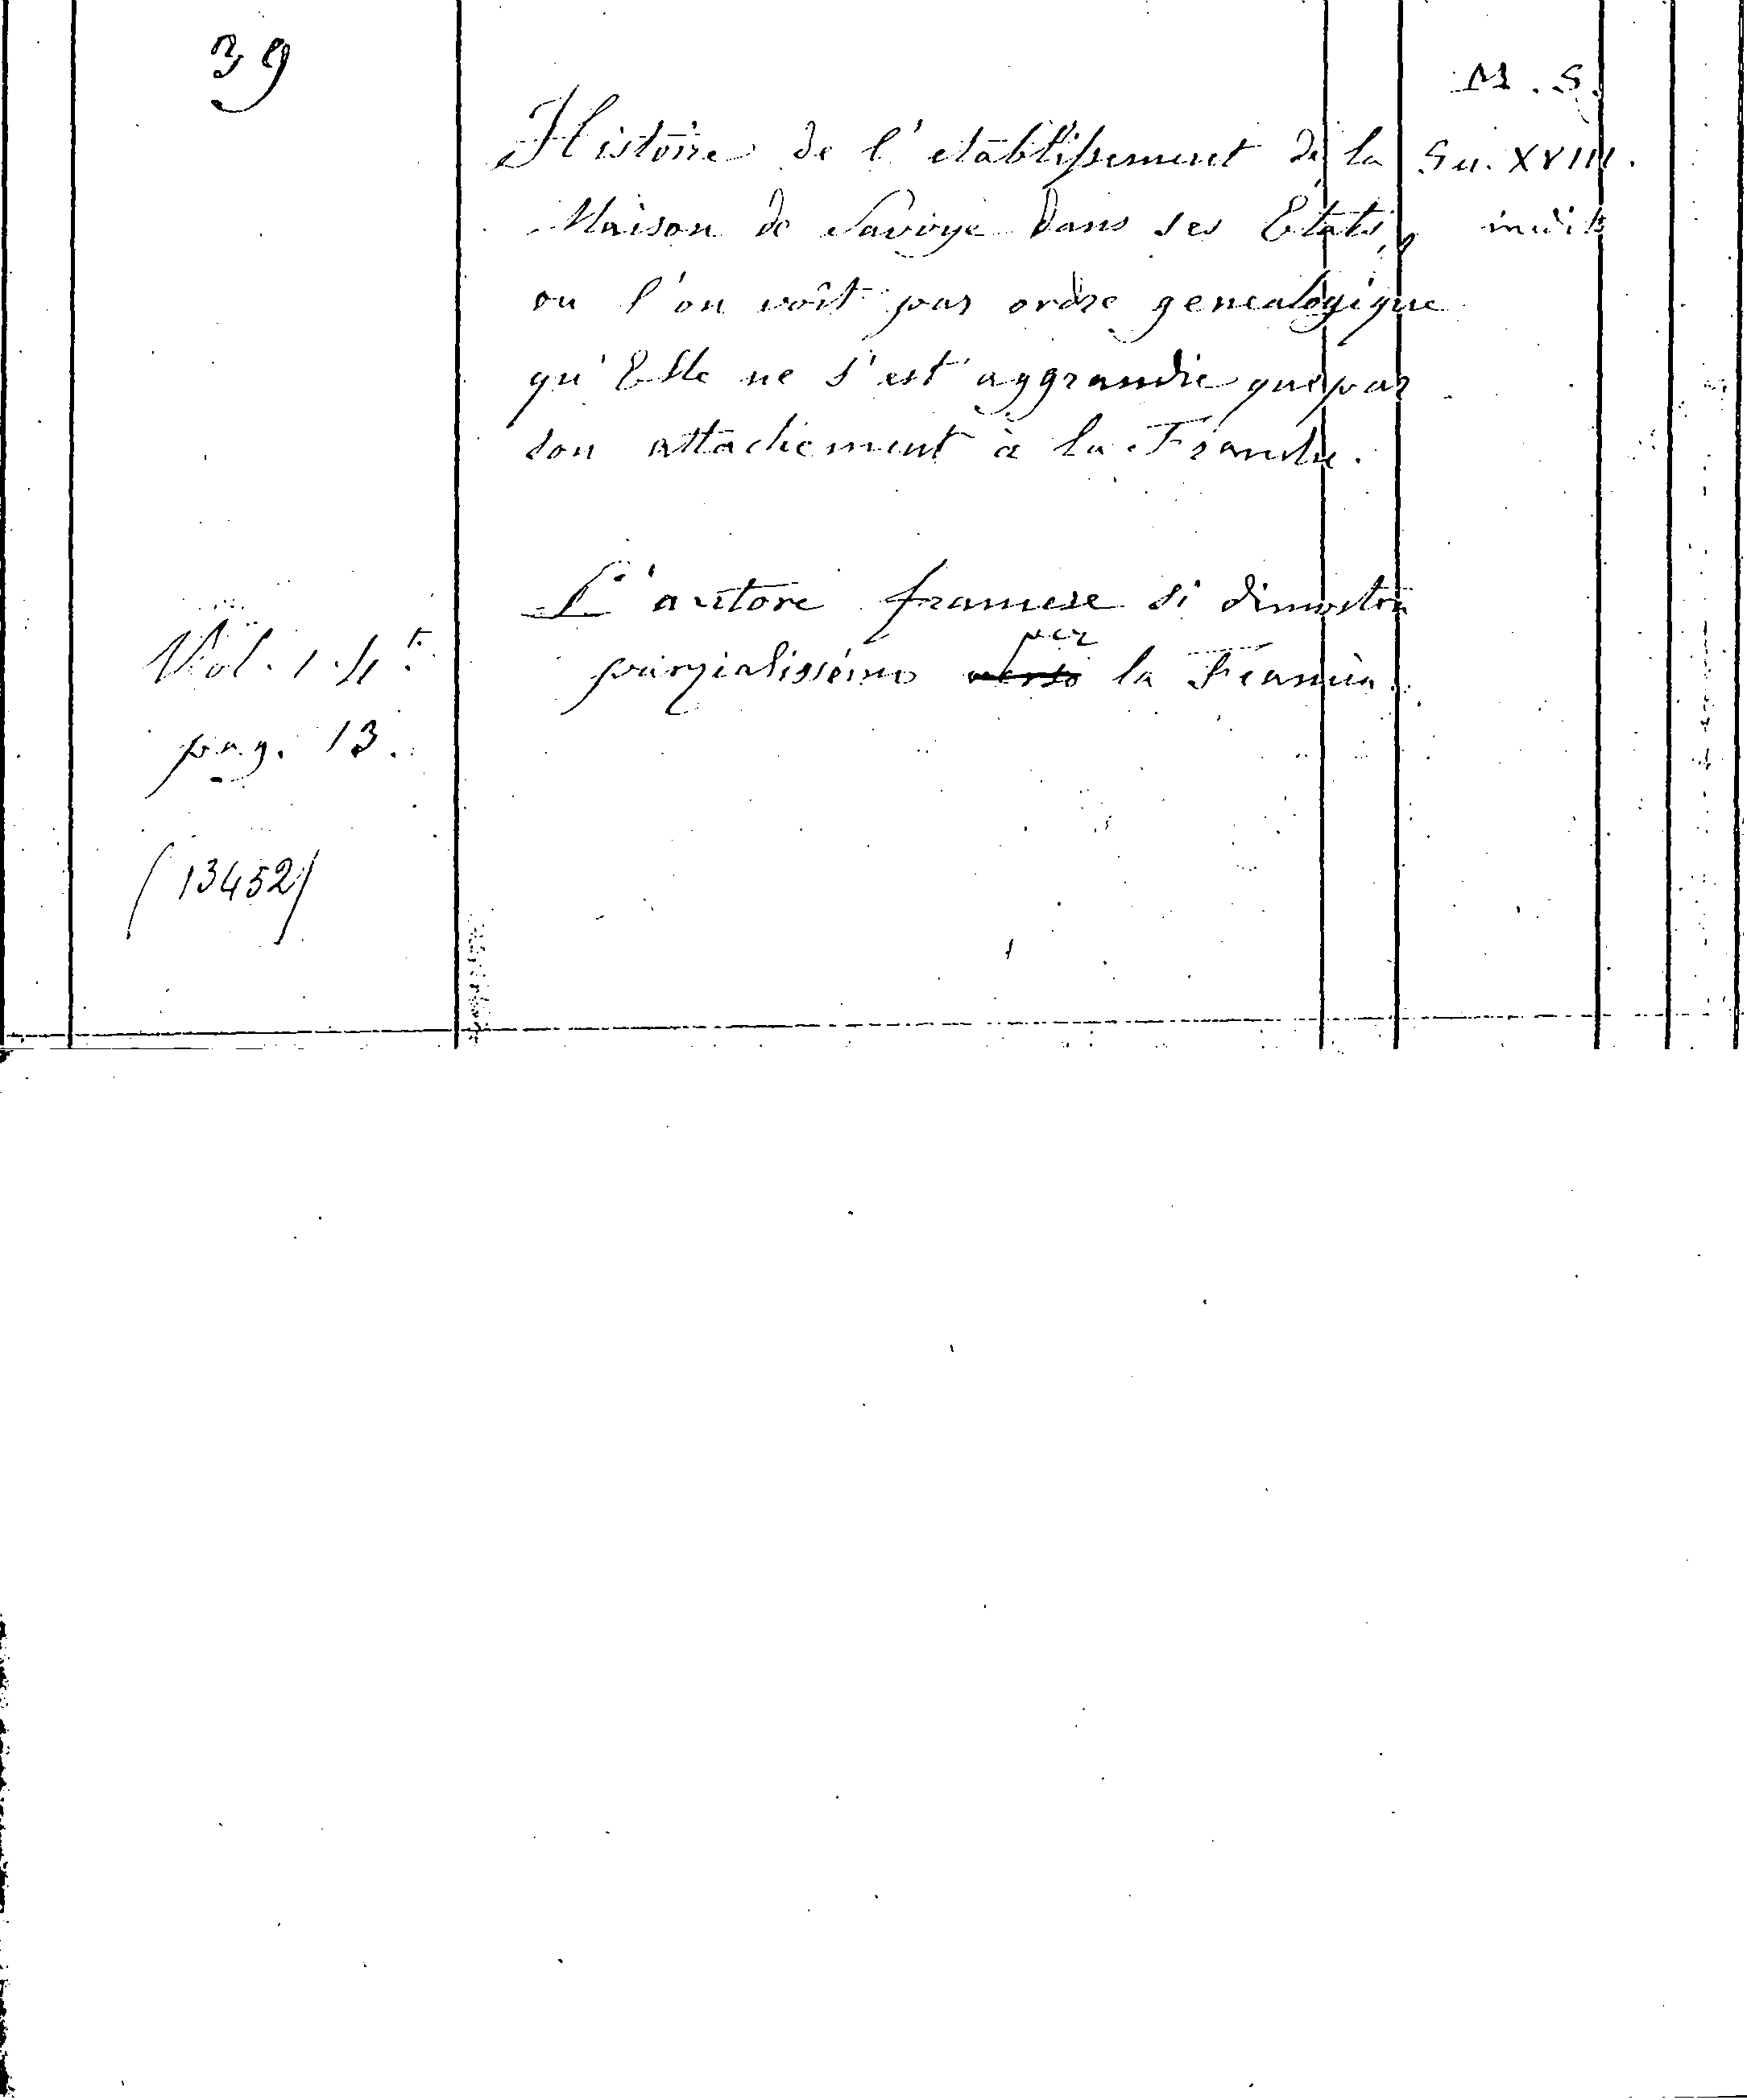 39
M. S.
Histoire de l'etablissement de la
Sec. XVIII.
Maison de Savoye dans ses Etats,
inedito
ou l'on voit par ordre genealogique
qu'Elle ne s'est aggrandie que par
son attachement à la France.
L'autore francese si dimostra
Vol. 1. 4.t
per
parzialissimo verso la Francia.
pag. 13.
(13452)